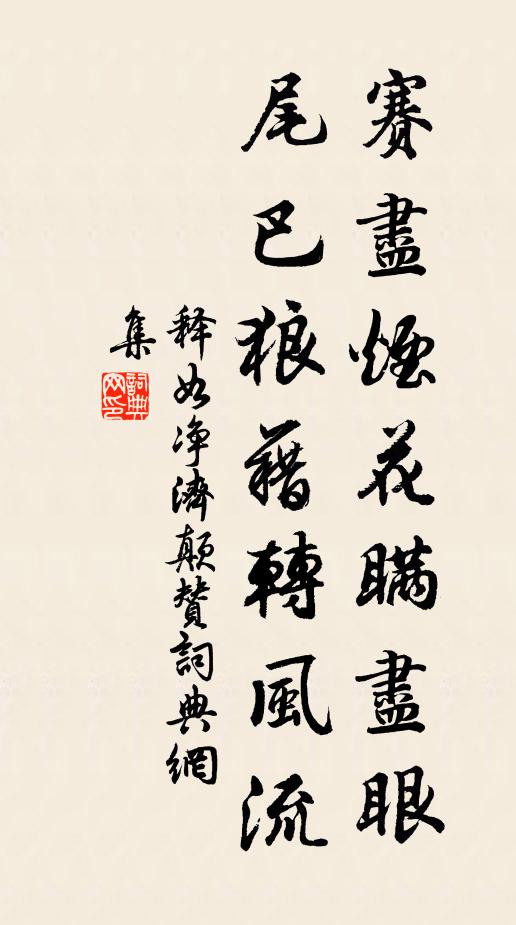 賽盡煙花瞞盡眼
尾巴狼藉轉風流
释如净濟顛賛詞典網
集
詞典網印